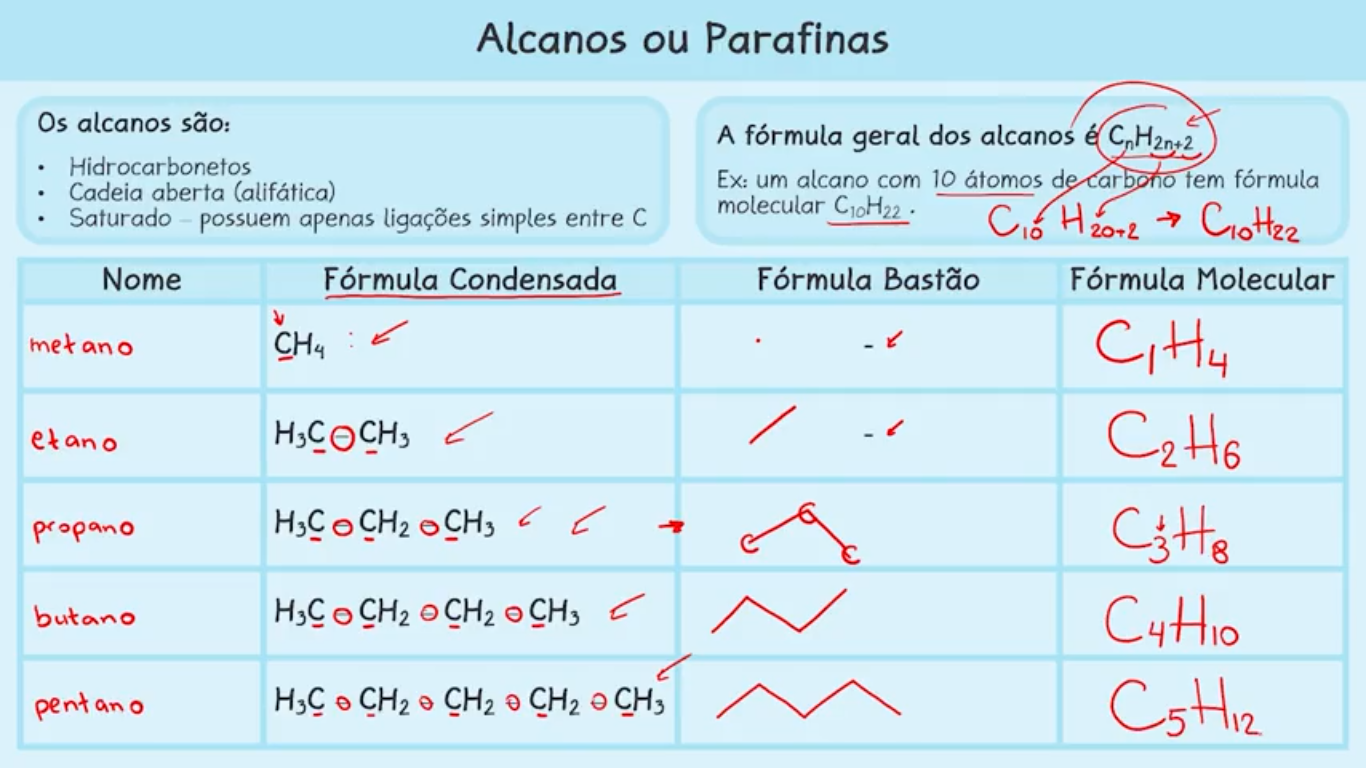 Alcanos ou Parafinas
Os alcanos são:
• Hidrocarbonetos
• Cadeia aberta (alifática)
• Saturado – possuem apenas ligações simples entre C
A fórmula geral dos alcanos é CₙH₂ₙ₊₂
Ex: um alcano com 10 átomos de carbono tem fórmula
molecular C₁₀H₂₂ .
C₁₀ H₂₀₊₂ → C₁₀H₂₂
Nome Fórmula Condensada Fórmula Bastão Fórmula Molecular
metano CH₄ - C₁H₄
etano H₃C-CH₃ - C₂H₆
propano H₃C-CH₂-CH₃ C C C C₃H₈
butano H₃C-CH₂-CH₂-CH₃ C₄H₁₀
pentano H₃C-CH₂-CH₂-CH₂-CH₃ C₅H₁₂